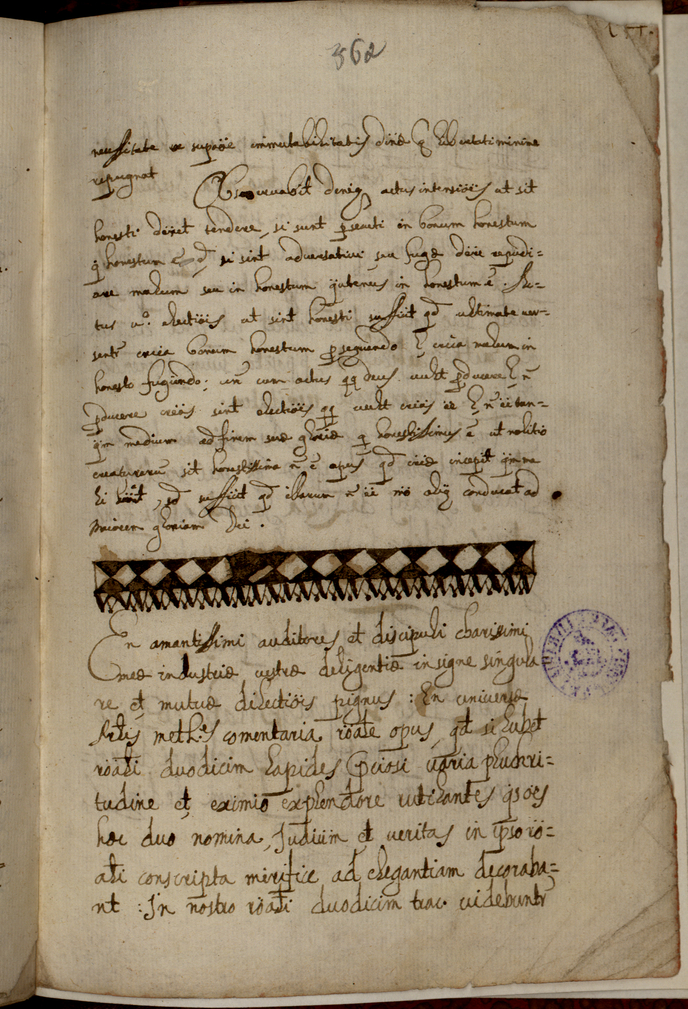 362
necessitate ac supröe immutabilitatis dinæ q̃ libertati minime
repugnat
Observabit deniq actus intensiöis ut sit
honesti debet tendere, si sunt prosecuti in bonum honestum
q̃ honestum ẽ qd si sint adversativi seu fugæ debẽ repudi=
are malum seu in honestum quatenus in honestum ẽ. Ac=
tus vº. electiöis ut sint honesti sufficit qd ultimate ver=
sentr circa bonum honestum prosequendo l circa malum in
honesto fugiendo; cum actus qq Deus vult producere l ñ
producere creäs sint electiöis qq vult creäs ẽe l ñ ẽe tan=
qm medium ad finem suæ gloriæ q honestissimus ẽ ut nolitio
creaturarum sit honestissima ñ ẽ opus qd
, sed sufficit qd illarum ñ ẽẽ mõ aliq conducat ad
maiorem gloriam Dei.
En amantissimi auditores et discipuli charissimi
meæ industriæ vestræ deligentiæ insigne singula
re et mutuæ dilectiöis pignus: En universæ
Artis meth.s comentaria röate opus, qd si lubet
röali duodicim lapides pciosi varia pluchri=
tudine et eximio explendore rutilantes qs oes
hæc duo nomina, Judium et veritas in ipso rö=
ali conscripta mirifice ad elegantiam decoraba=
nt: In nostro röali duodicim trac. videbuntr